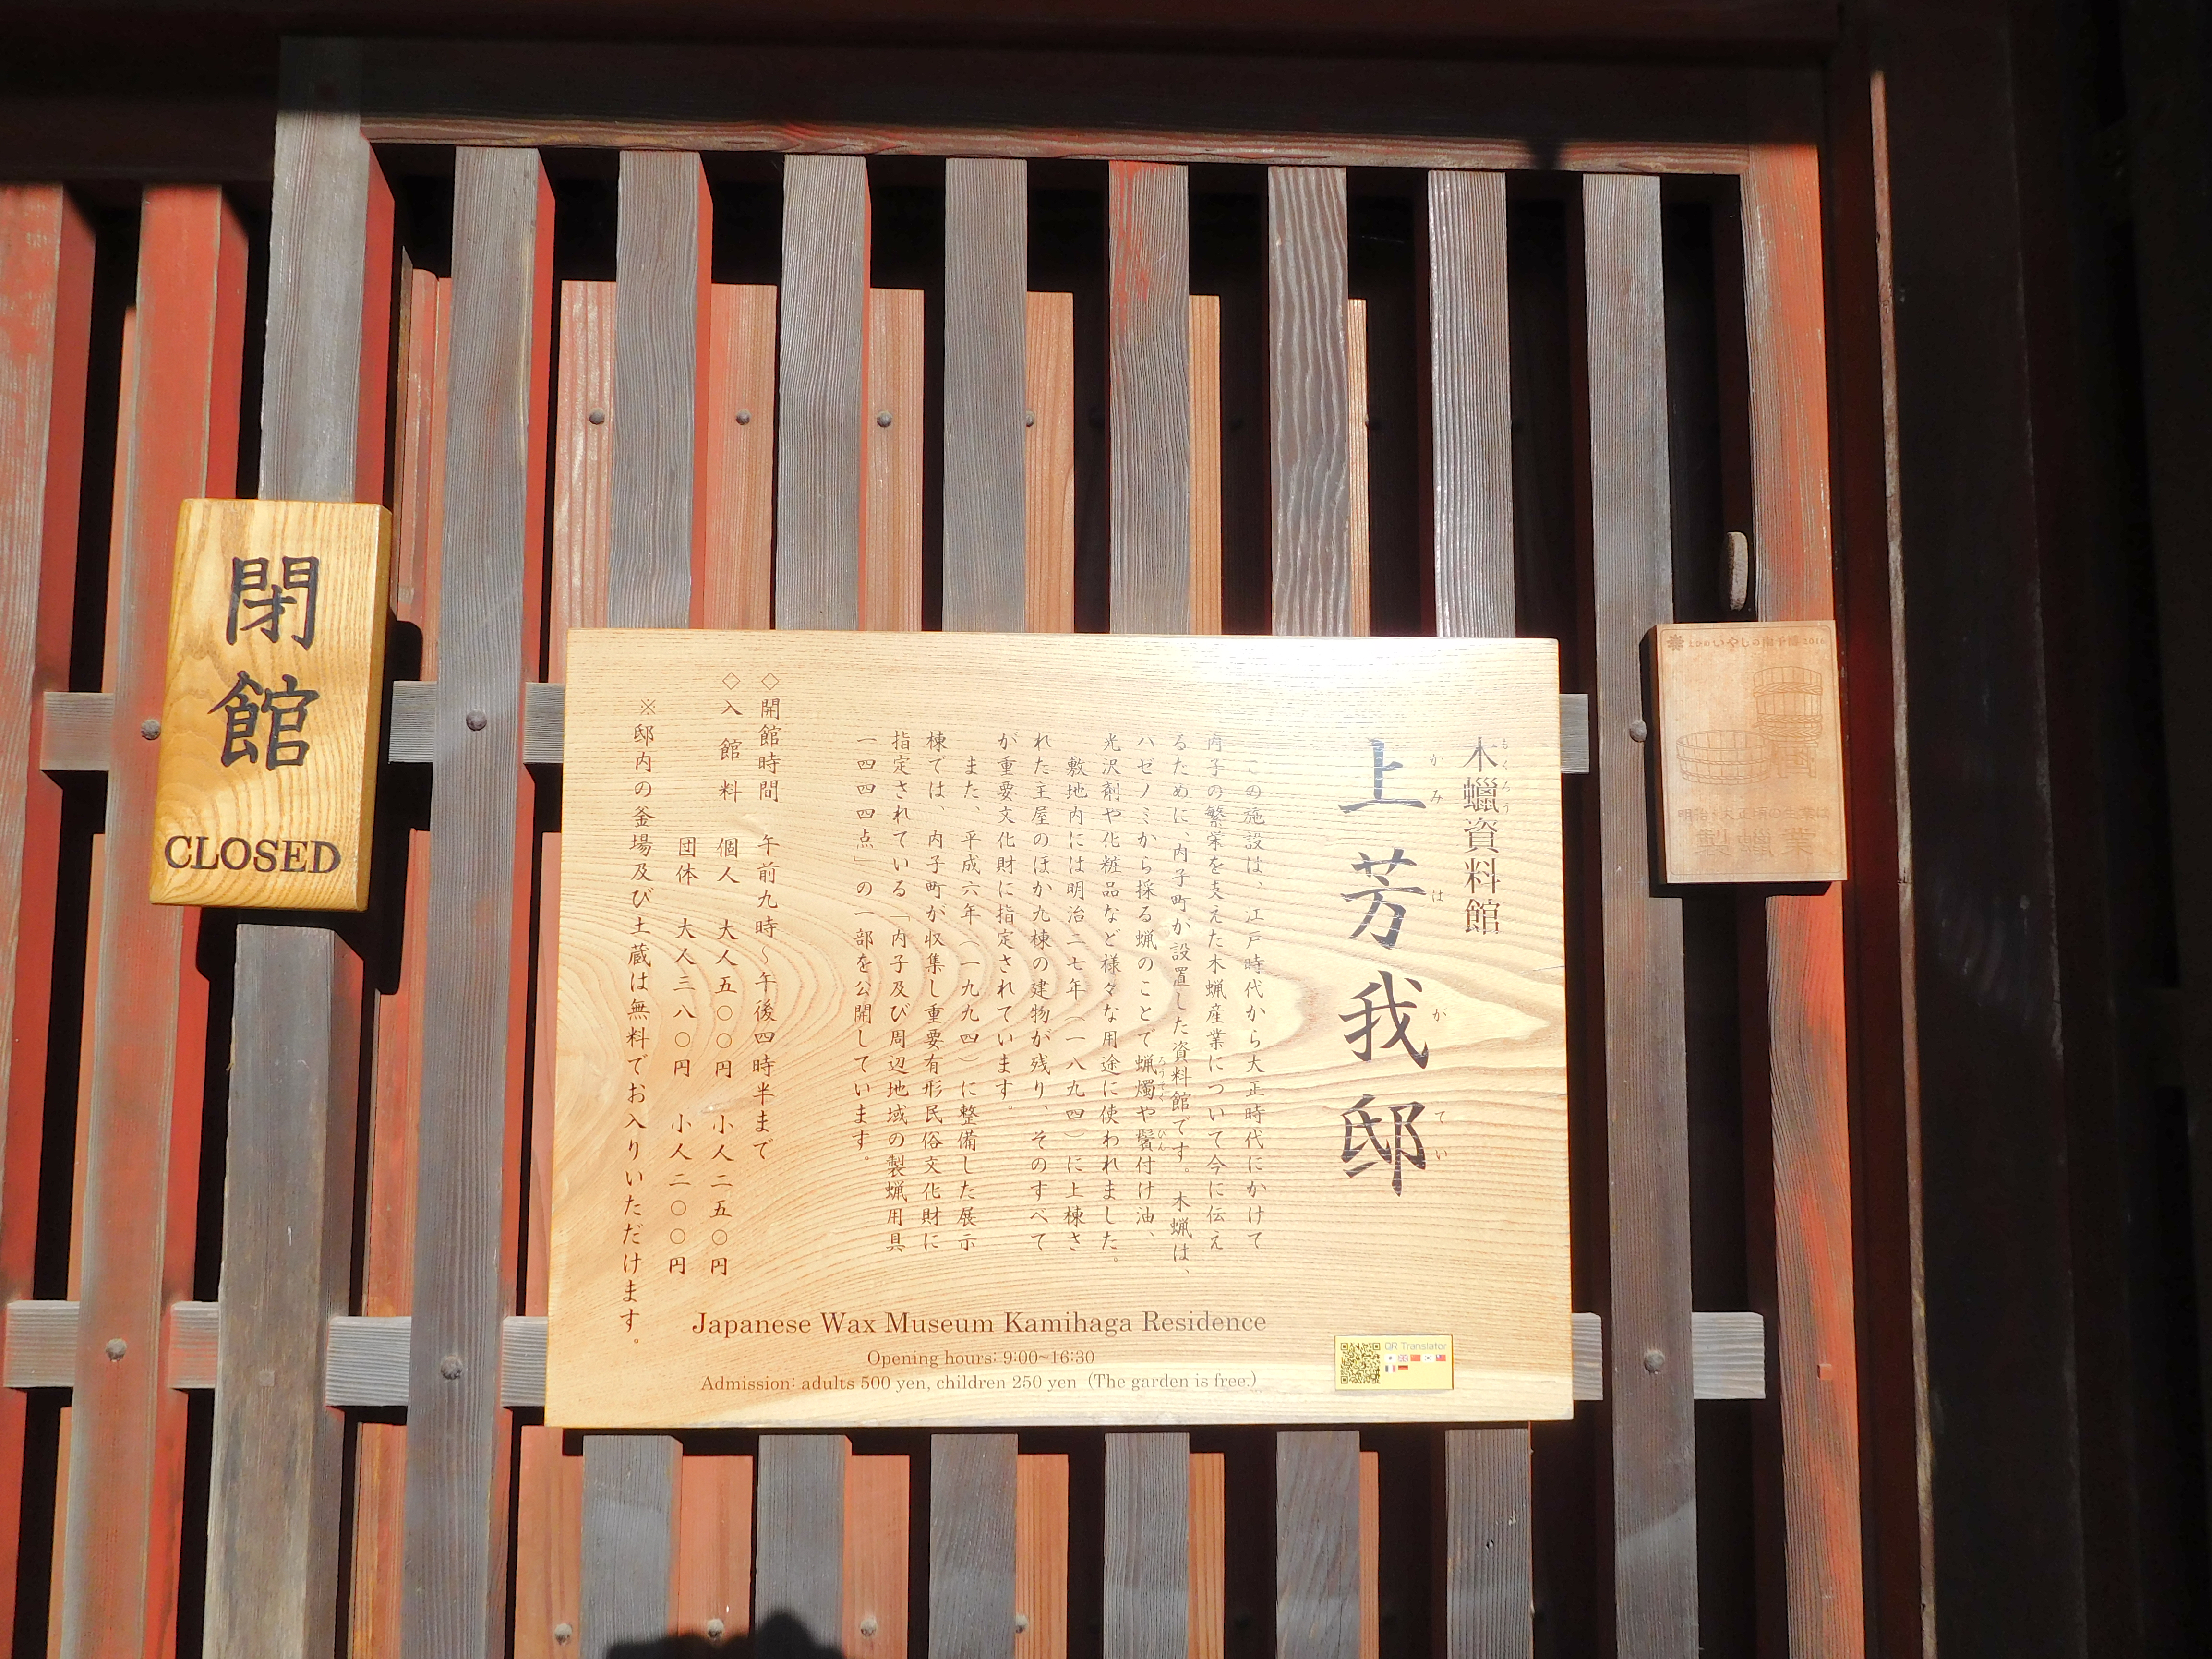 閉館
CLOSED
木蠟資料館
もくろう
上芳我邸
かみはがてい
この施設は、江戸時代から大正時代にかけて
内子の繁栄を支えた木蝋産業について今に伝え
るために、内子町が設置した資料館です。木蝋は、
ハゼノミから採る蝋のことで蝋燭や鬢付け油、
ろうそく
びん
光沢剤や化粧品など様々な用途に使われました。
敷地内には明治二七年（一八九四）に上棟さ
れた主屋のほか九棟の建物が残り、そのすべて
が重要文化財に指定されています。
また、平成六年（一九九四）に整備した展示
棟では、内子町が収集し重要有形民俗文化財に
指定されている「内子及び周辺地域の製蝋用具
一四四四点」の一部を公開しています。
◇開館時間 午前九時～午後四時半まで
◇入館料 個人 大人五〇〇円 小人二五〇円
団体 大人三八〇円 小人二〇〇円
※邸内の釜場及び土蔵は無料でお入りいただけます。
Japanese Wax Museum Kamihaga Residence
Opening hours: 9:00~16:30
Admission: adults 500 yen, children 250 yen (The garden is free.)
QR Translator
いやしの南予博2016
明治・大正頃の生業は
製蠟業